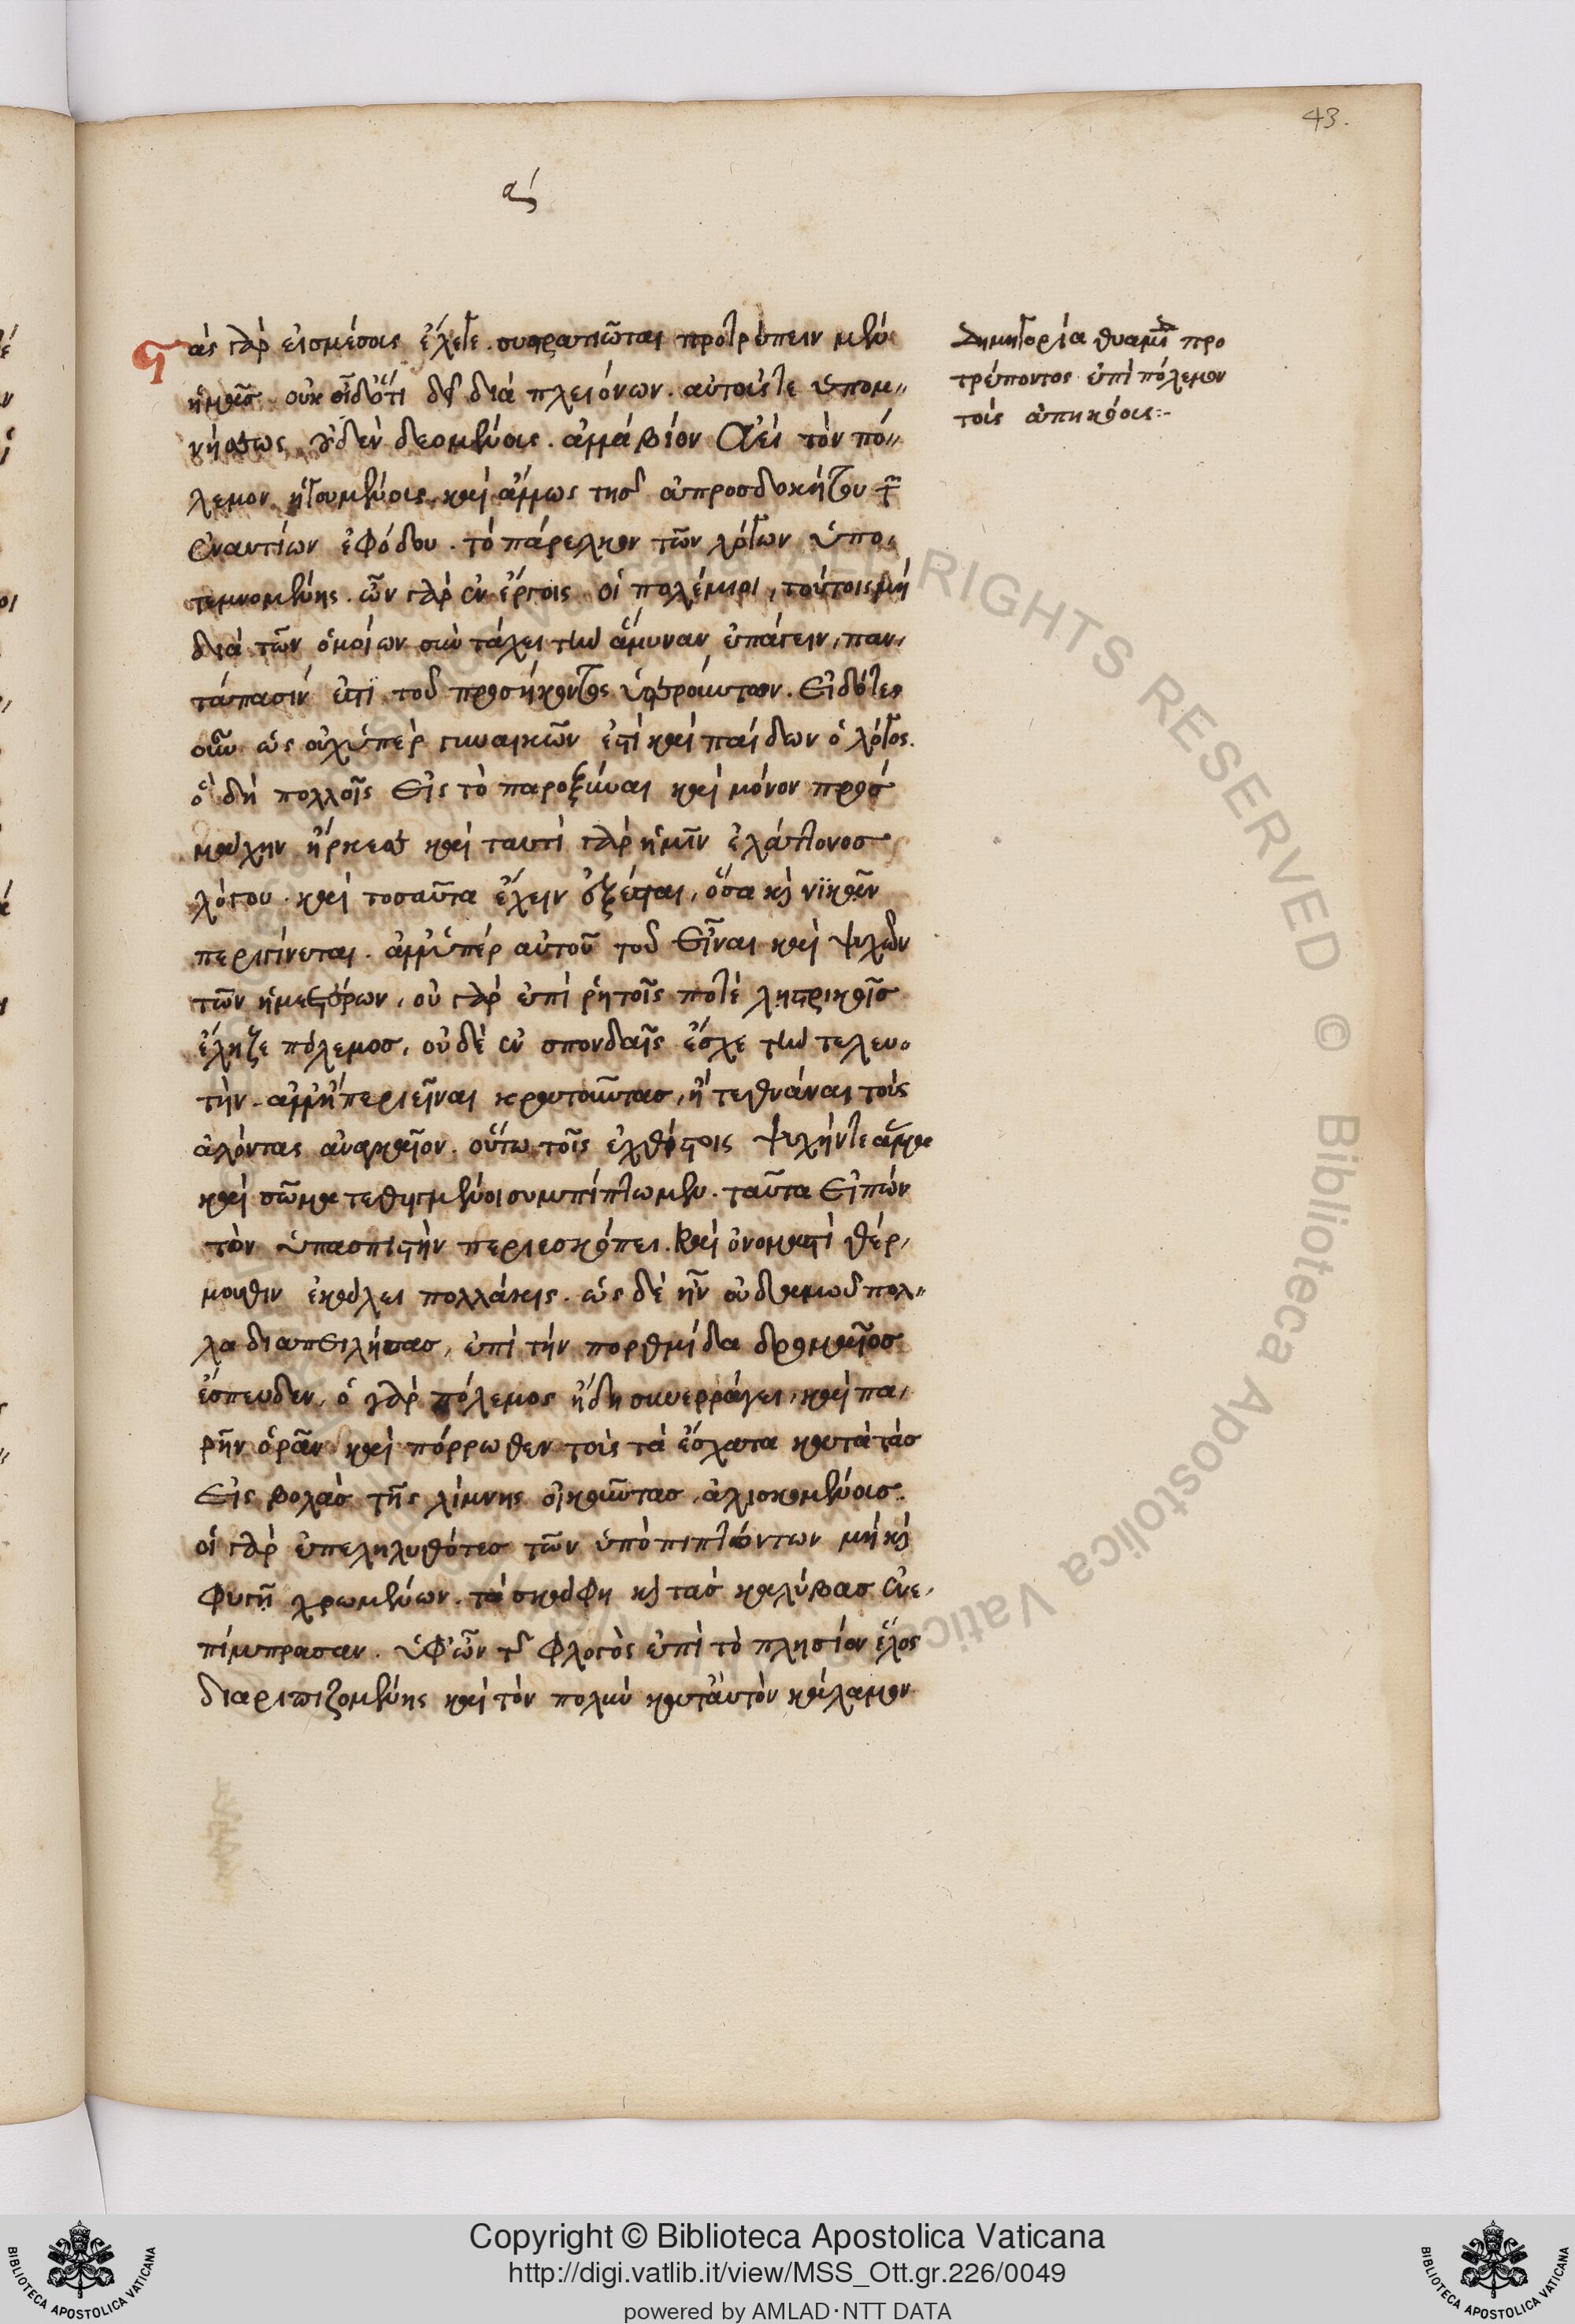 43.
α΄
Τὰς γὰρ εἰσμέσοις ἔχετε. συστρατιῶται προτρέπειν μὲν
ἡμᾶς οὐκ οἶδ' ὅτι δεῖ διὰ πλειόνων. αὐτούς τε ὑπομ-
νήσεως οὐδὲν δεομένους. ἀλλὰ βίον ἀεὶ τὸν πό-
λεμον ἡγουμένους, καὶ ἄλλως τῆς ἀπροσδοκήτου τῶν
ἐναντίων ἐφόδου. τὸ πάρελκον τῶν λόγων ὑπο-
τεμνομένης. ὧν γὰρ ἐν ἔργοις οἱ πολέμιοι, τούτοις μὴ
διὰ τῶν ὁμοίων σὺν τάχει τὴν ἄμυναν ἐπάγειν, παν-
τάπασιν ἐστὶ τοῦ προσήκοντος ὑστερούντων. Εἰδότες
οὖν ὡς οὐχ ὑπὲρ γυναικῶν ἐστὶ καὶ παίδων ὁ λόγος.
ὃ δὴ πολλοῖς εἰς τὸ παροξύναι καὶ μόνον πρὸς
μάχην ἤρκεσε καὶ ταυτὶ γὰρ ἡμῖν ἐλάττονος
λόγου. καὶ τοσαῦτα ἔχειν ἐξέσται, ὅσα καὶ νϊκᾶν
περιγίνεται. ἀλλ' ὑπὲρ αὐτοῦ τοῦ εἶναι καὶ ψυχῶν
τῶν ἡμετέρων, οὐ γὰρ ἐπὶ ῥητοῖς ποτὲ λῃστρικοῖς
ἔληξε πόλεμος, οὐδὲ ἐν σπονδαῖς ἔσχε τὴν τελευ-
τὴν. ἀλλ' ἢ περιεῖναι κρατοῦντας, ἢ τεθνάναι τοὺς
ἁλόντας ἀναγκαῖον. οὕτω τοῖς ἐχθίστοις ψυχήν τε ἅμα
καὶ σῶμα τεθηγμένοι συμπίπτωμεν. ταῦτα εἰπὼν
τὸν ὑπασπιστὴν περιεσκόπει. Καὶ ὀνομαστὶ θέρ-
μουθιν ἐκάλει πολλάκις. ὡς δὲ ἦν οὐδαμοῦ πολ-
λα διαπειλήσας, ἐπὶ τὴν πορθμίδα δρομαῖος
ἔσπευδεν, ὁ γὰρ πόλεμος ἤδη συνερράγει, καὶ πα-
ρῆν ὁρᾶν καὶ πόρρωθεν τοὺς τὰ ἔσχατα κατὰ τὰς
εἰς βολὰς τῆς λίμνης οἰκοῦντας, ἁλισκομένους.
οἱ γὰρ ἐπεληλυθότες τῶν ὑποπιπτόντων μὴ καὶ
φυγῇ χρωμένων. τὰ σκάφη καὶ τὰς καλύβας ἐνε-
πίμπρασαν. ὑφ' ὧν τῆς φλογὸς ἐπὶ τὸ πλησίον ἕλος
διαριπιζομένης καὶ τὸν πολὺν κατ' αὐτὸν κάλαμον
Δημηγορία θυάμιδος προ
τρέποντος ἐπὶ πόλεμον
τοὺς ὑπηκόους:-
ALL RIGHTS RESERVED © Biblioteca Apostolica Vaticana
Copyright © Biblioteca Apostolica Vaticana
http://digi.vatlib.it/view/MSS_Ott.gr.226/0049
powered by AMLAD·NTT DATA
BIBLIOTECA APOSTOLICA VATICANA
BIBLIOTECA APOSTOLICA VATICANA